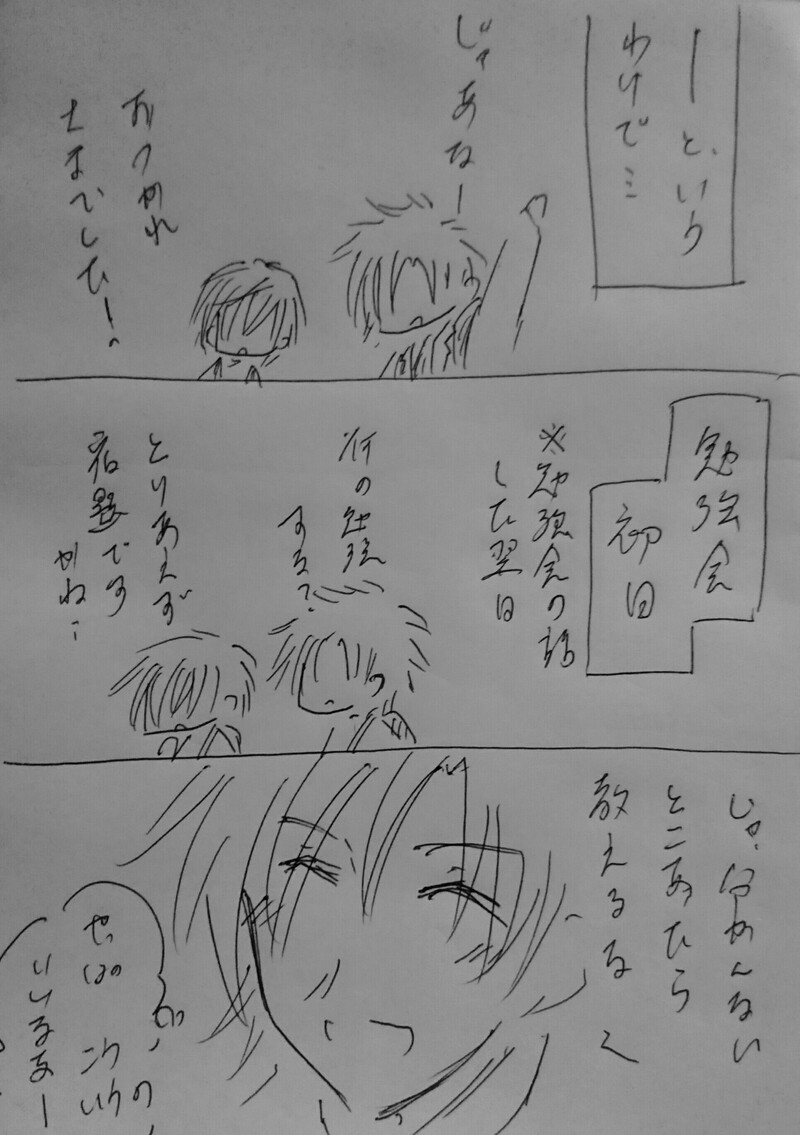 ーと、いう
わけで…
じゃあなー
おつかれ
さまでした!
勉強会
初日
※勉強会の話
した翌日
何の勉強
する?
とりあえず
宿題です
かね…
じゃ、分かんない
とこあったら
教えるな
やっぱ
こういうの、
いいなあー